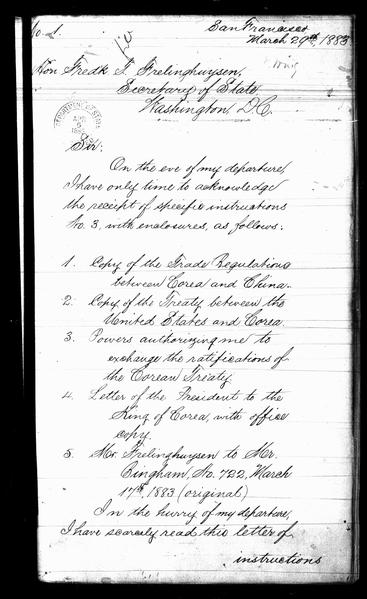 No. 1.
San Francisco
March 29th, 1883
Hon Fredk T. Frelinghuysen,
Secretary of State,
Washington, D.C.
DEPARTMENT OF STATE
Sir:
On the eve of my departure,
I have only time to acknowledge
the receipt of specific instructions
No. 3, with enclosures, as follows:
1. Copy of the Trade Regulations
between Corea and China.
2. Copy of the Treaty between the
United States and Corea.
3. Powers authorizing me to
exchange the ratifications of
the Corean Treaty
4. Letter of the President to the
King of Corea, with office
copy.
5. Mr. Frelinghuysen to Mr.
Bingham, No. 722, March
17th, 1883 (original)
In the hurry of my departure,
I have scarcely read this letter of
instructions